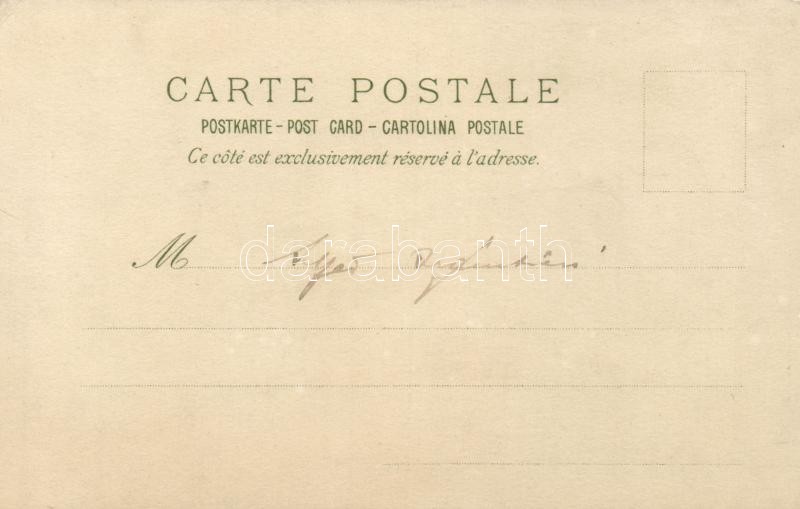 CARTE POSTALE
POSTKARTE - POST CARD - CARTOLINA POSTALE
Ce côté est exclusivement réservé à l'adresse.
M
darabanth.com